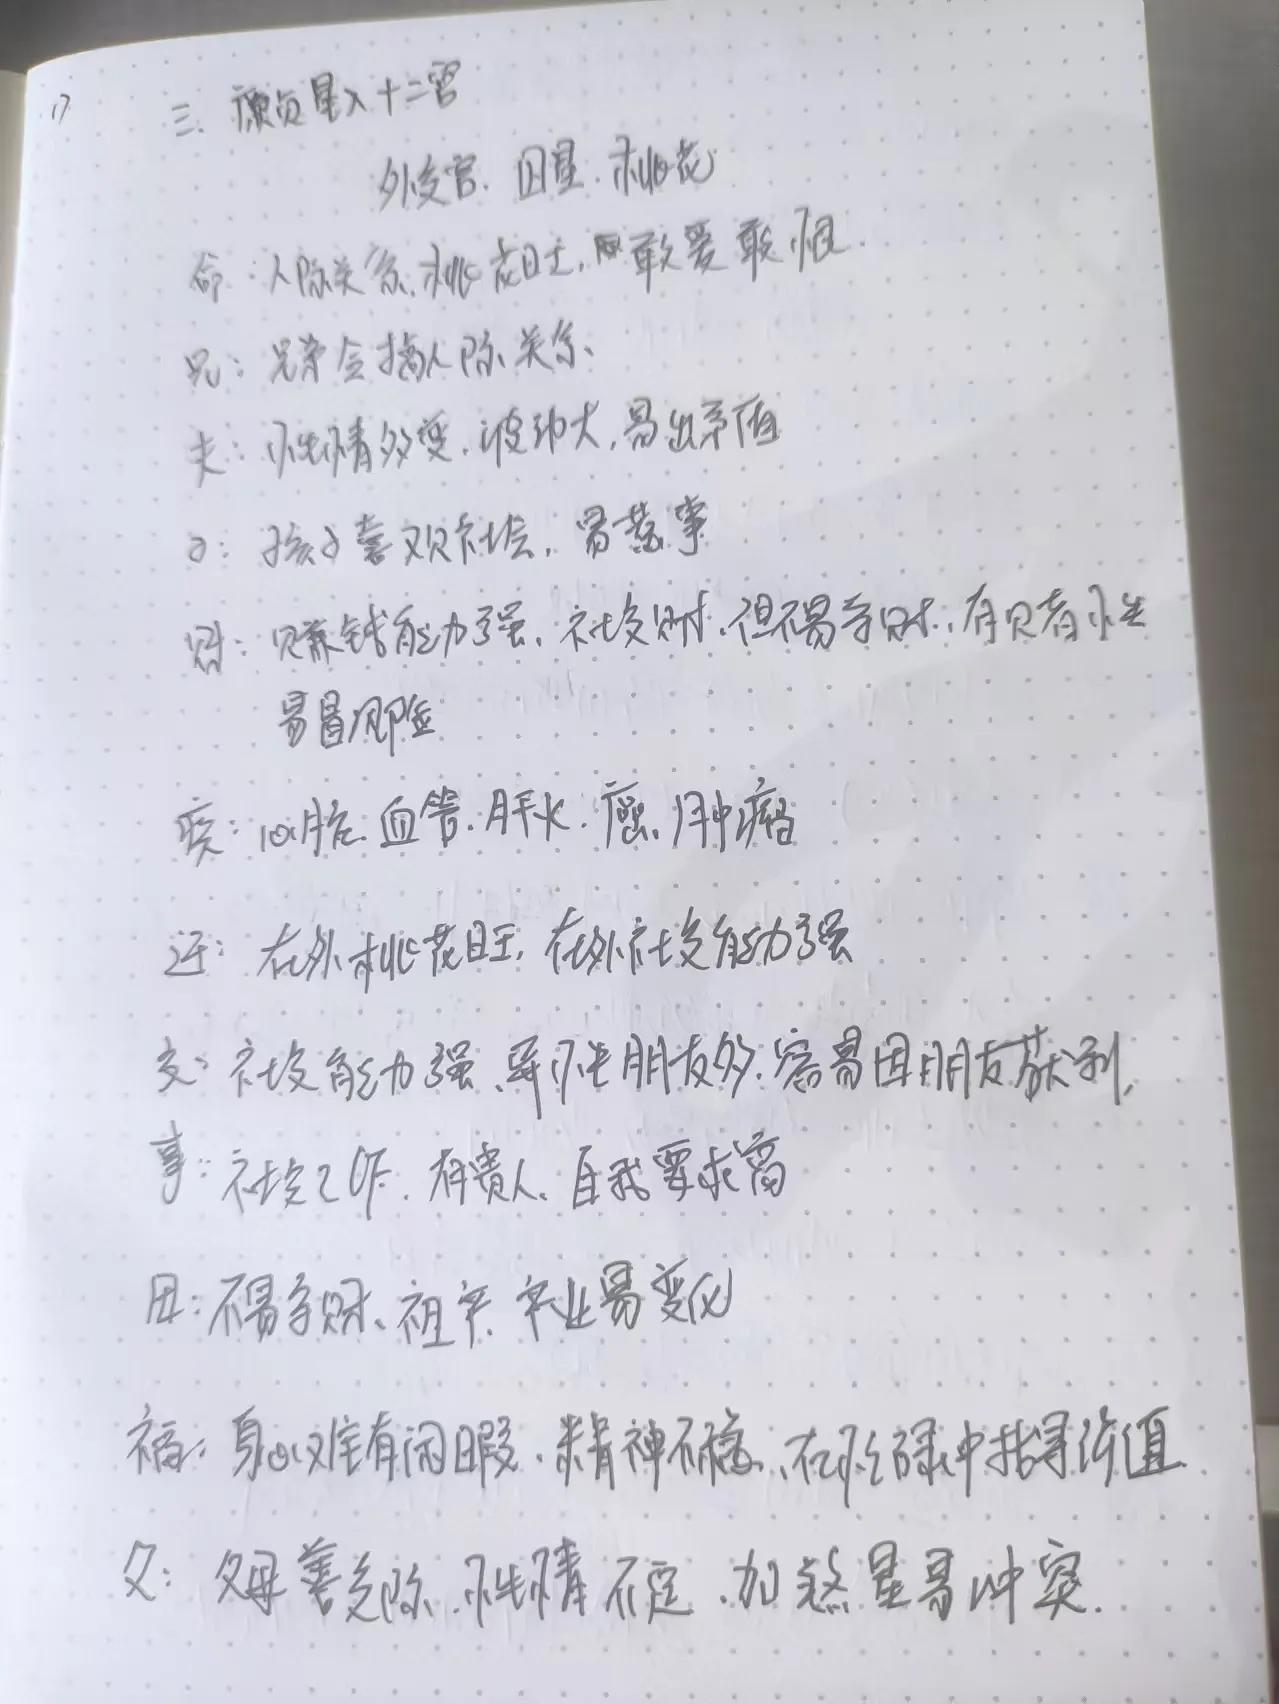 17
三. 廉贞星入十二宫
外交官. 囚星. 桃花
命: 人际关系, 桃花旺, 敢爱敢恨.
兄: 兄弟会搞人际关系、
夫: 性情多变. 波动大, 易出矛盾
子: 孩子喜欢社会, 易惹事
财: 赚钱能力强. 社交财. 但不易守财. 有只有性
易冒风险
疾: 心脏. 血管. 肝火. 癌. 肿瘤
迁: 在外桃花旺, 在外社交能力强
交: 社交能力强、异性朋友多. 容易因朋友获利,
事: 社交工作. 有贵人. 自我要求高
田: 不易守财、祖产. 产业易变化
福: 身心难有闲暇. 精神不稳. 在忙碌中找寻价值
父: 父母善交际. 性情不定. 加煞星易冲突.